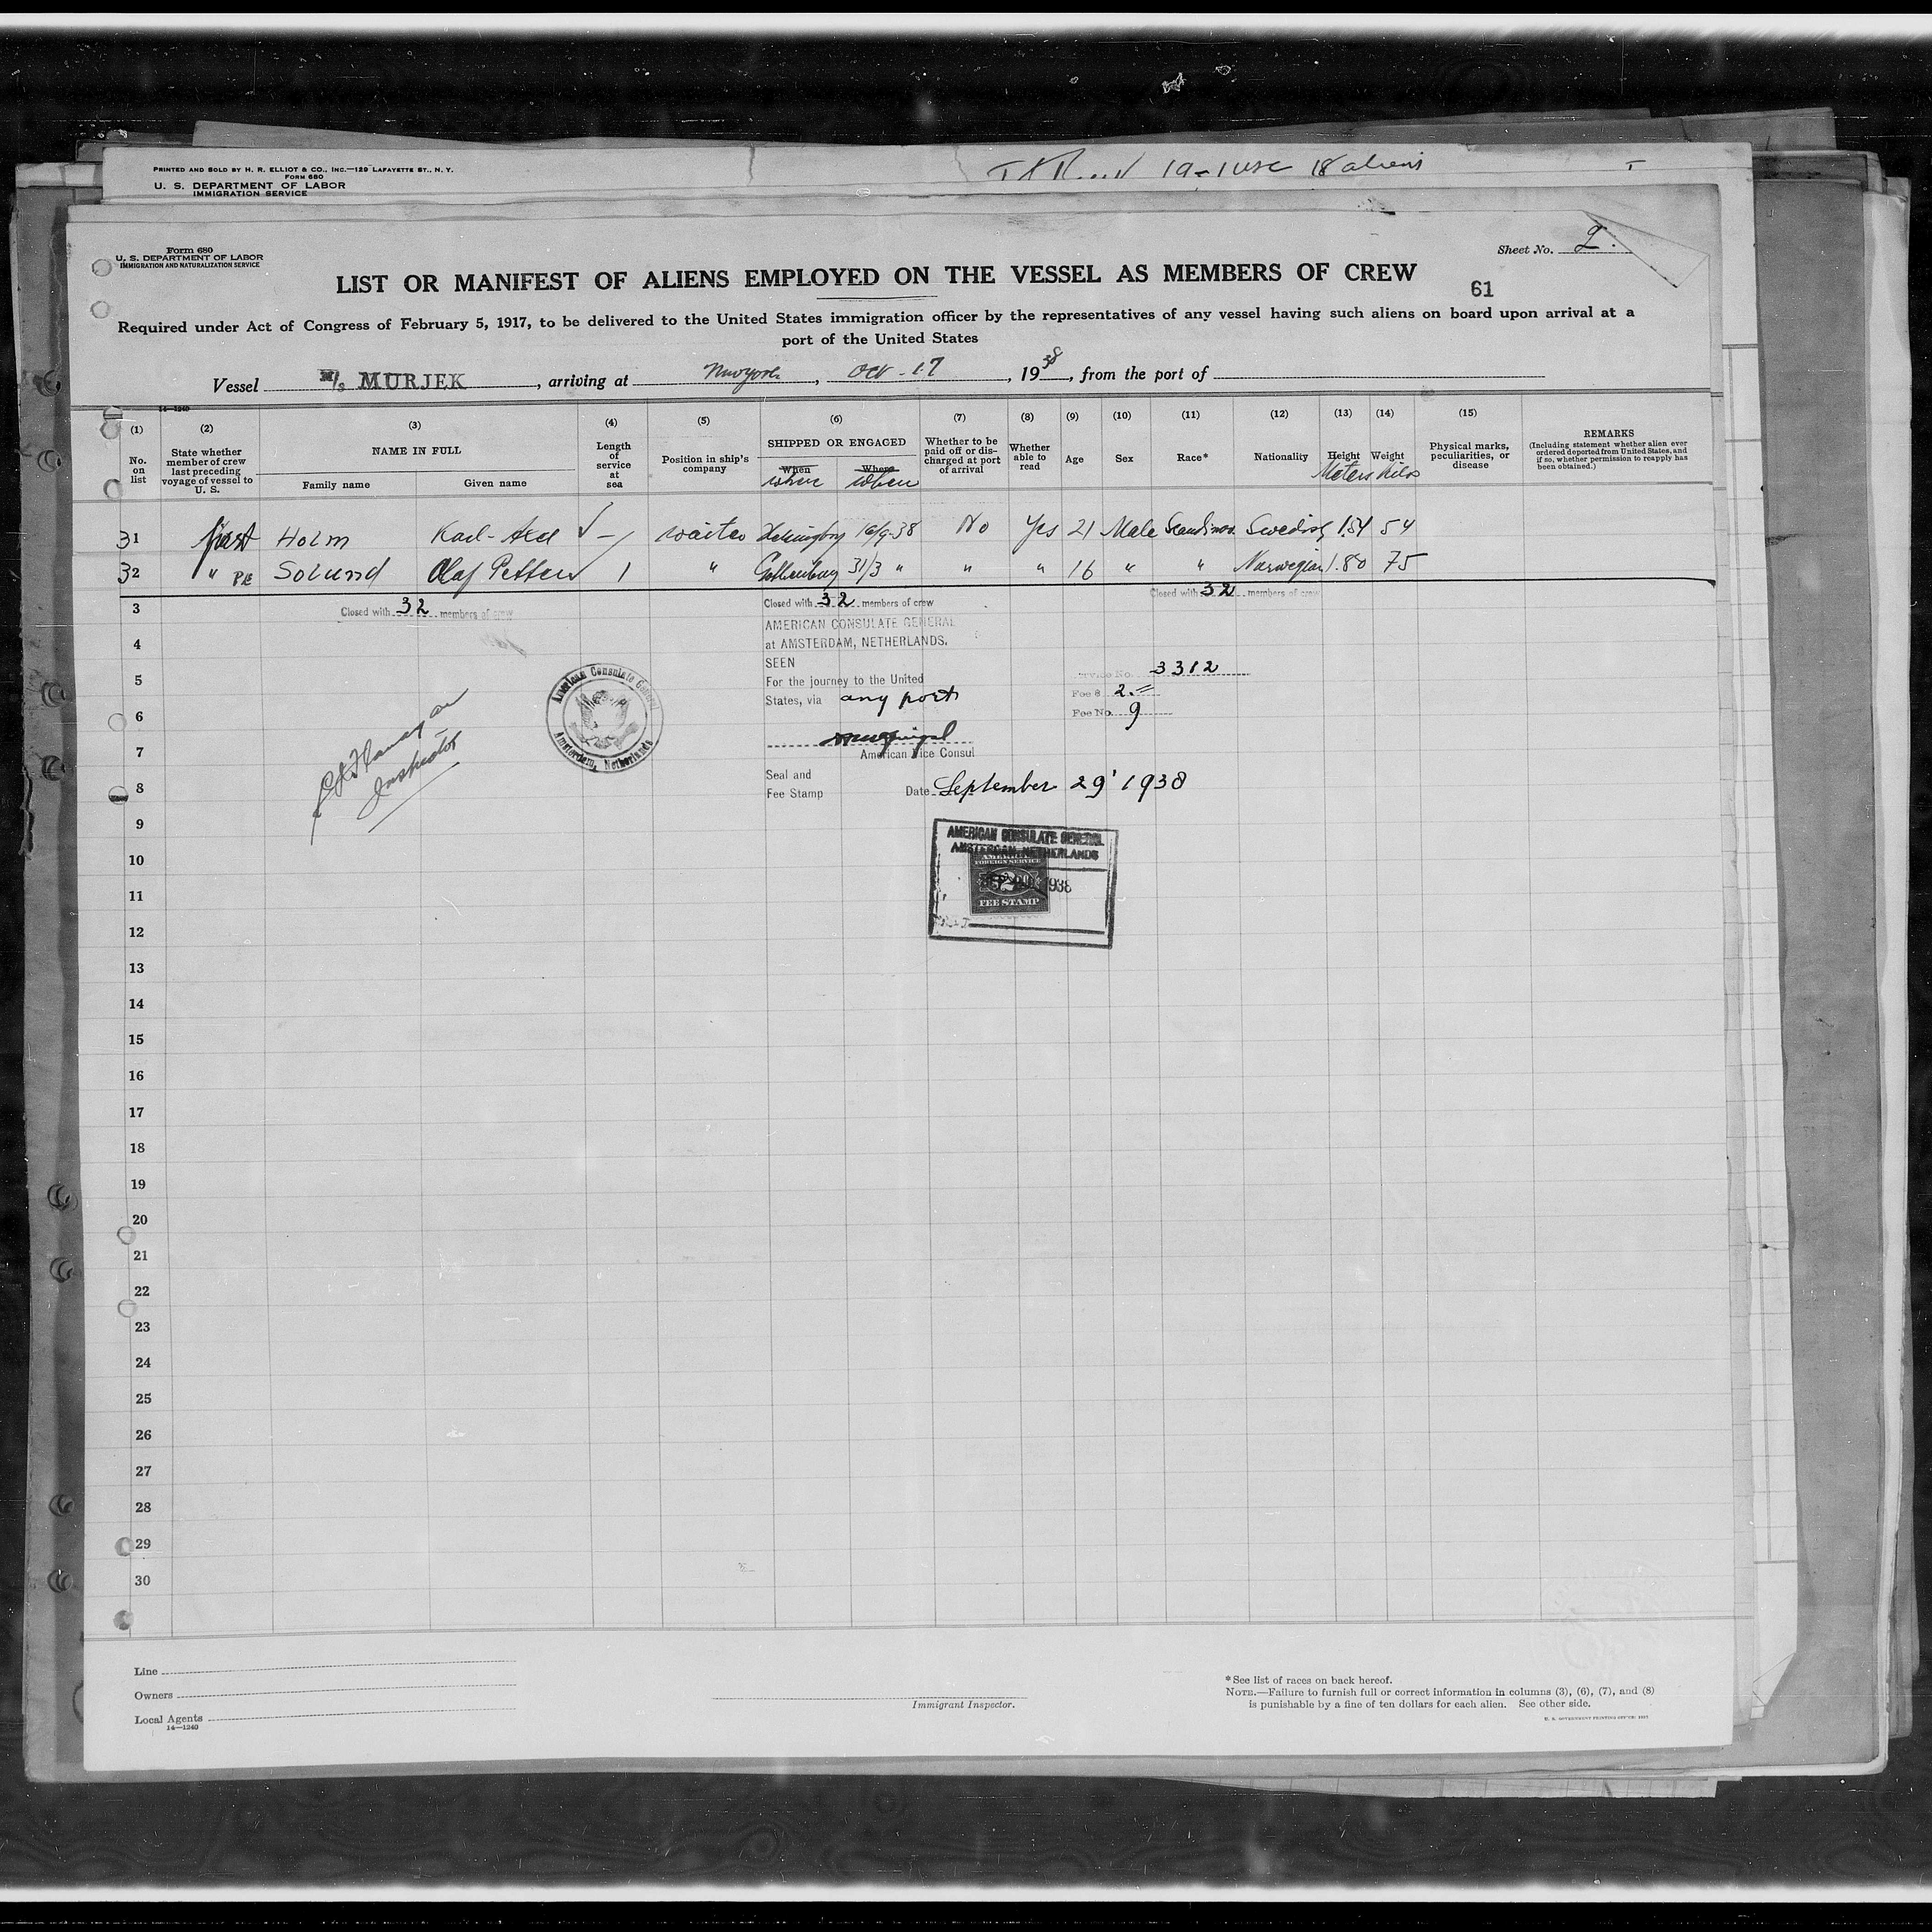 PRINTED AND SOLD BY H. R. ELLIOT & CO., INC.—129 LAFAYETTE ST., N. Y.
FORM 680
U. S. DEPARTMENT OF LABOR
IMMIGRATION SERVICE
19-1 USC 18 aliens
Form 680
U. S. DEPARTMENT OF LABOR
IMMIGRATION AND NATURALIZATION SERVICE
Sheet No. 2.
LIST OR MANIFEST OF ALIENS EMPLOYED ON THE VESSEL AS MEMBERS OF CREW
61
Required under Act of Congress of February 5, 1917, to be delivered to the United States immigration officer by the representatives of any vessel having such aliens on board upon arrival at a
port of the United States
Vessel M/s MURJEK, arriving at New York, Oct-17, 1938, from the port of
14—1240
(1) (2) (3) (4) (5) (6) (7) (8) (9) (10) (11) (12) (13) (14) (15)
No. on list
State whether member of crew last preceding voyage of vessel to U. S.
NAME IN FULL
Family name Given name
Length of service at sea
Position in ship's company
SHIPPED OR ENGAGED
When Where
where when
Whether to be paid off or discharged at port of arrival
Whether able to read
Age
Sex
Race*
Nationality
Height Weight
Meters Kilos
Physical marks, peculiarities, or disease
REMARKS
(Including statement whether alien ever ordered deported from United States, and if so, whether permission to reapply has been obtained.)
31 first Holm Karl-Axel √ - waiter Helsingborg 16/9-38 No Yes 21 Male Scandinav. Swedish 1.54 54
32 " Solund Olaf Petter 1 " Gothenburg 31/3 " " " 16 " " Norwegian 1.80 75
3 Closed with 32 members of crew Closed with 32 members of crew Closed with 32 members of crew
AMERICAN CONSULATE GENERAL
4 at AMSTERDAM, NETHERLANDS.
SEEN
5 For the journey to the United
States, via any port
No. 3312
Fee $ 2.=
Fee No. 9
American Consulate General
Amsterdam, Netherlands
6
7
American Vice Consul
Inspector
Seal and
8 Fee Stamp Date September 29' 1938
9
AMERICAN CONSULATE GENERAL
AMSTERDAM, NETHERLANDS
10
AMERICAN
FOREIGN SERVICE
11
1938
FEE STAMP
12
13
14
15
16
17
18
19
20
21
22
23
24
25
26
27
28
29
30
Line
Owners
Local Agents
14—1240
Immigrant Inspector.
*See list of races on back hereof.
NOTE.—Failure to furnish full or correct information in columns (3), (6), (7), and (8)
is punishable by a fine of ten dollars for each alien. See other side.